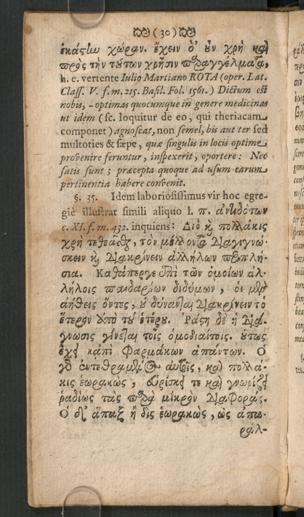 (30)
ἑκάϛων χώραν. ἔχειν ὀ ͂υν χρὴ καὶ
πρὸς τὴν τούτων χρῆσιν παραγγέλματα,
h. e. vertente Iulio Martiano ROTA (oper. Lat.
Class. V. f. m. 215. Basil. Fol. 1561.) Dictum est
nobis, - optimas quocunque in genere medicinas
ut idem (sc. loquitur de eo, qui theriacam
componet) agnoscat, non semel, bis aut ter sed
multoties & sæpe, quæ singulis in locis optime
provenire feruntur, inspexerit, oportere: Nec
satis sunt; præcepta quoque ad usum earum
pertinentia habere convenit.
§. 35. Idem laboriosissimus vir hoc egre-
gie illustrat simili aliquo l. π. ἀντιδότων
c. XI. f. m. 432. inquiens: Διὸ καὶ πολλάκις
χρὴ τεθεᾶσθαι, τὸν μέλλοντα διαγινώ-
σκειν καὶ διακρίνειν ἀλλήλων τὰ παραπλή-
σια. Καθάπερ γε ἐπὶ τῶν ὁμοίων ἀλ-
λήλοις παιδαρίων διδύμων, οἱ μὲν
ἀήθεις ὄντες, οὐ δύνανται διακρίνειν τὸ
ἕτερον ἀπὸ τοῦ ἑτέρου. Ῥᾴϛη δὲ ἡ διά-
γνωσις γίνεται τοῖς ὁμοδιαίτοις. οὕτως
ἔχει κἀπὶ φαρμάκων ἁπάντων. Ὁ
γὰρ ἐντεθραμμένος αὐτοῖς, καὶ πολλά-
κις ἑωρακὼς, εὑρίσκει τε καὶ γνωρίζει
ῥαδίως τὰς παρὰ μικρὸν διαφοράς.
Ὁ δ' ἅπαξ ἢ δὶς ἑωρακὼς, ὡς ἀπα-
ραλ-